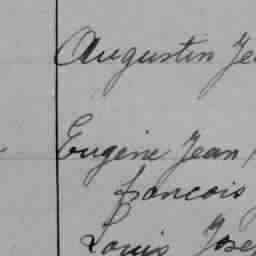 Augustin Je
Eugène Jean
francois
Louis Jose